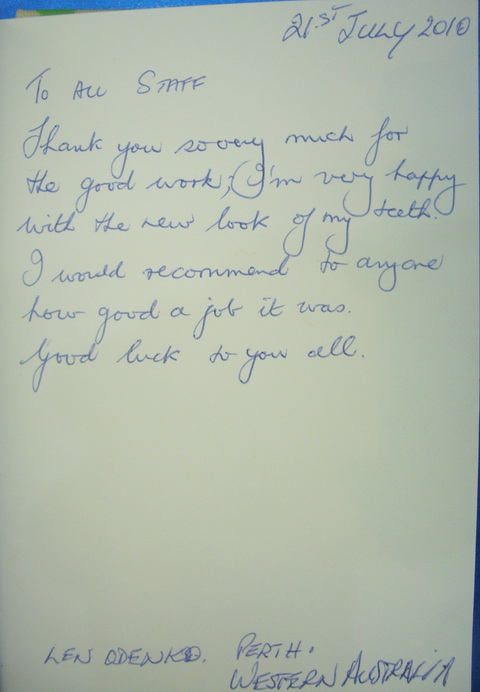 21ST JULY 2010
TO ALL STAFF
Thank you so very much for
the good work; I'm very happy
with the new look of my teeth.
I would recommend to anyone
how good a job it was.
Good luck to you all.
LEN ODENKO. PERTH.
WESTERN AUSTRALIA